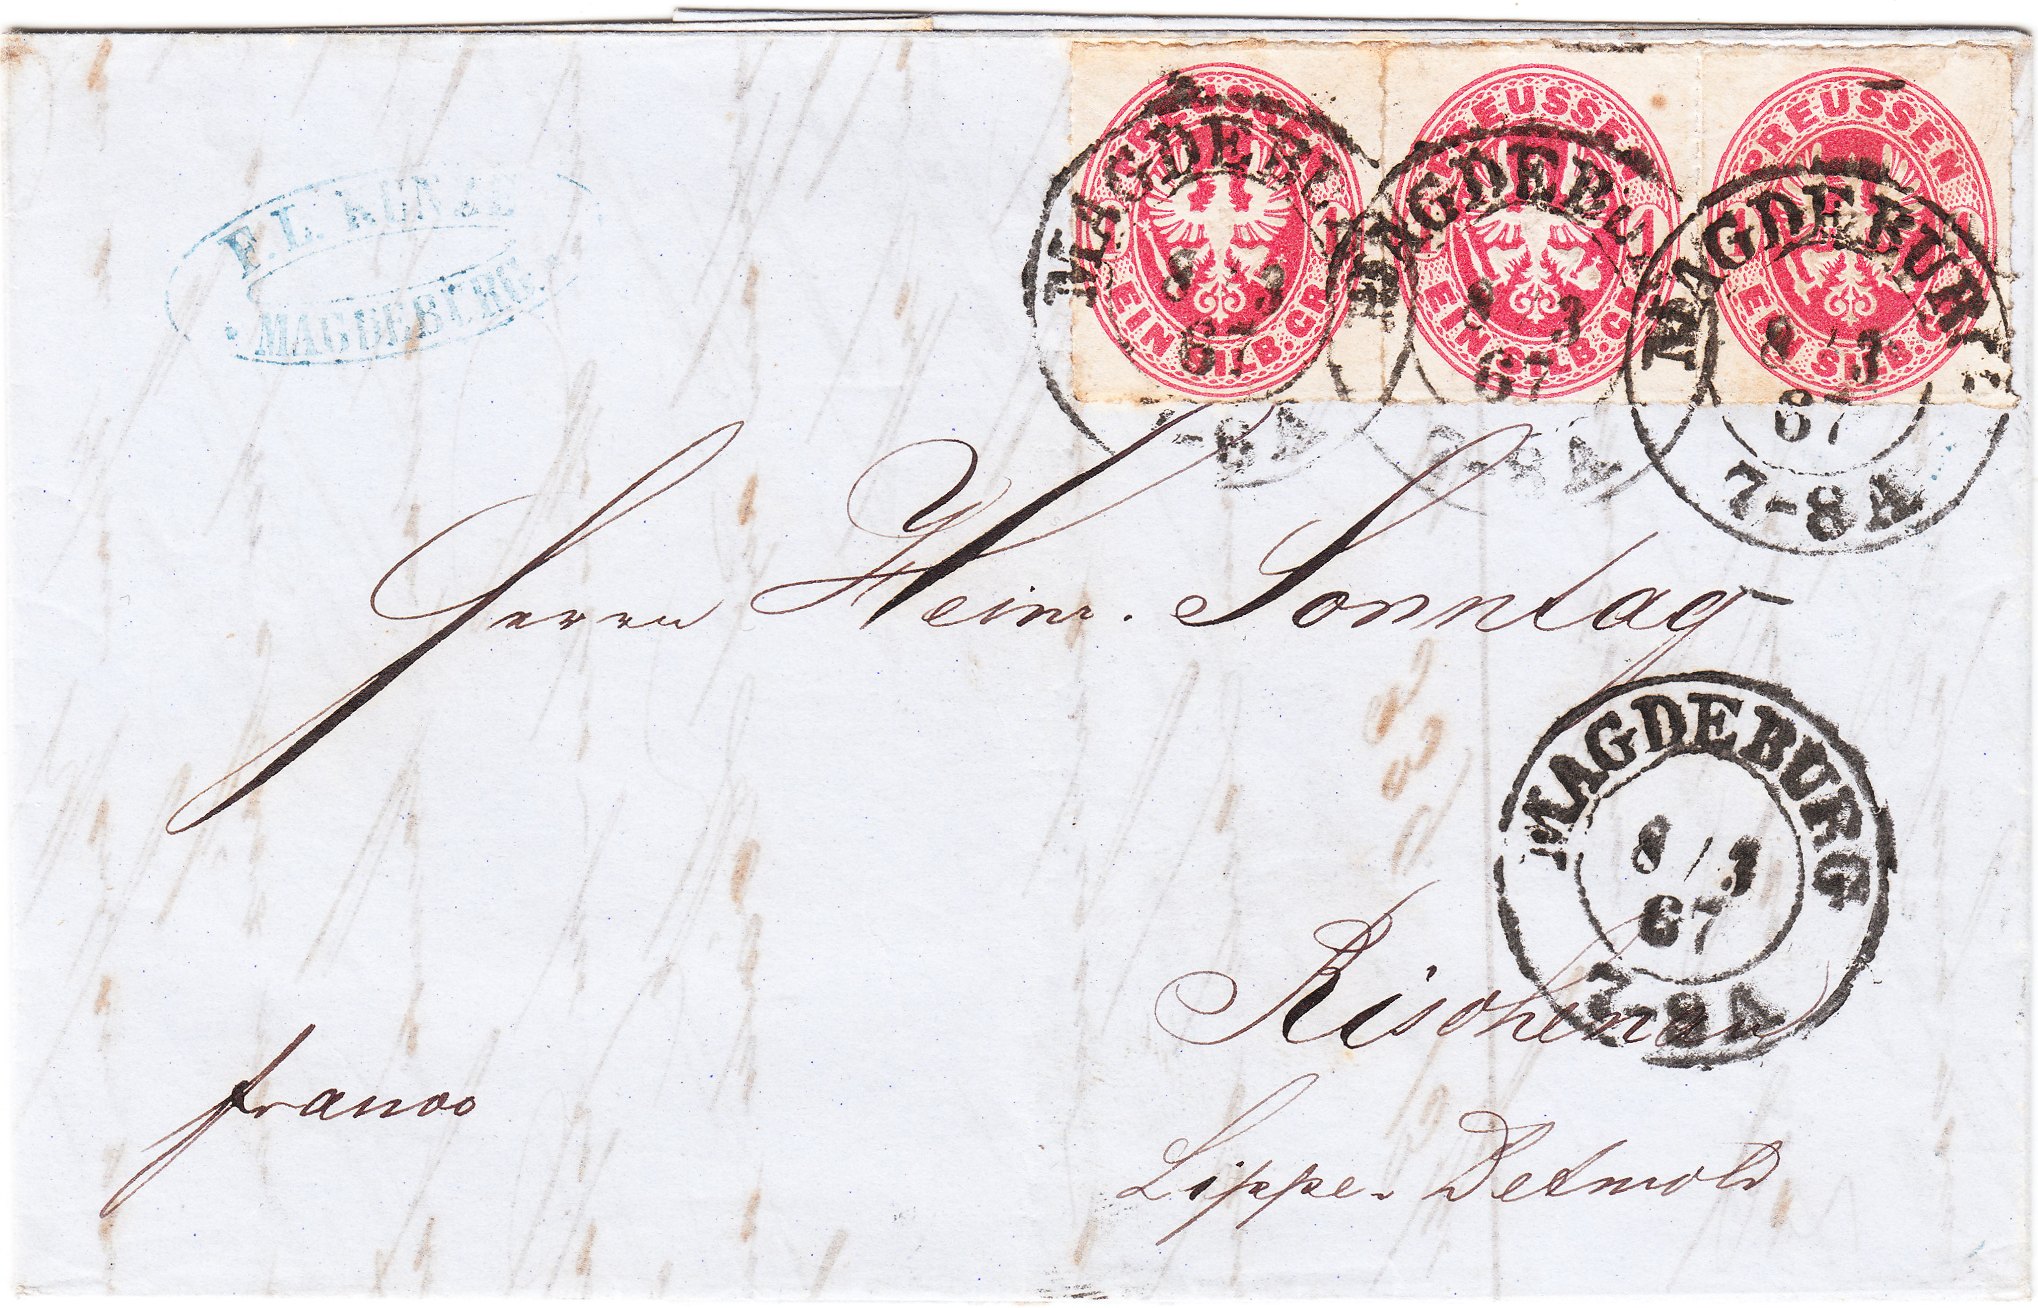 F. L. KUNZE
MAGDEBURG.
PREUSSEN
EIN SILB. GR.
PREUSSEN
EIN SILB. GR.
PREUSSEN
EIN SILB. GR.
MAGDEBURG
8/3
67
7-8A
MAGDEBURG
8/3
67
7-8A
MAGDEBURG
8/3
67
7-8A
Herrn Heinr. Sonntag
MAGDEBURG
8/3
67
7-8A
Rischenau
franco
Lippe-Detmold